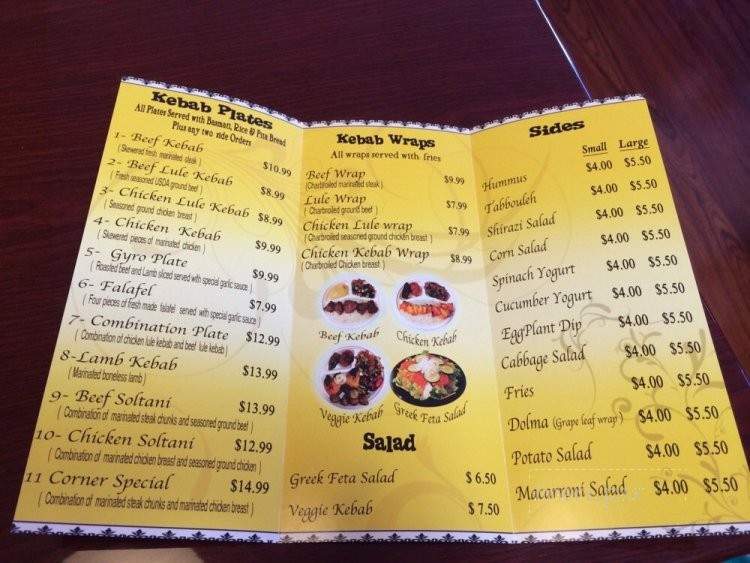 Kebab Plates
All Plates Served with Basmati, Rice & Pita Bread
Plus any two side Orders
1- Beef Kebab $10.99
( Skewered fresh marinated steak )
2- Beef Lule Kebab $8.99
( Fresh seasoned USDA ground beef )
3- Chicken Lule Kebab $8.99
( Seasoned ground chicken breast )
4- Chicken Kebab $9.99
( Skewered pieces of marinated chicken )
5- Gyro Plate $9.99
( Roasted beef and Lamb sliced served with special garlic sauce )
6- Falafel $7.99
( Four pieces of fresh made falafel served with special garlic sauce )
7- Combination Plate $12.99
( Combination of chicken lule kebab and beef lule kebab )
8-Lamb Kebab $13.99
( Marinated boneless lamb )
9- Beef Soltani $13.99
( Combination of marinated steak chunks and seasoned ground beef )
10- Chicken Soltani $12.99
( Combination of marinated chicken breast and seasoned ground chicken )
11 Corner Special $14.99
( Combination of marinated steak chunks and marinated chicken breast )
Kebab Wraps
All wraps served with fries
Beef Wrap $9.99
( Charbroiled marinated steak )
Lule Wrap $7.99
( Charbroiled ground beef )
Chicken Lule wrap $7.99
( Charbroiled seasoned ground chicken breast )
Chicken Kebab Wrap $8.99
( Charbroiled Chicken breast )
Beef Kebab Chicken Kebab
Veggie Kebab Greek Feta Salad
Salad
Greek Feta Salad $ 6.50
Veggie Kebab $ 7.50
Sides
Small Large
Hummus $4.00 $5.50
Tabbouleh $4.00 $5.50
Shirazi Salad $4.00 $5.50
Corn Salad $4.00 $5.50
Spinach Yogurt $4.00 $5.50
Cucumber Yogurt $4.00 $5.50
EggPlant Dip $4.00 $5.50
Cabbage Salad $4.00 $5.50
Fries $4.00 $5.50
Dolma (Grape leaf wrap ) $4.00 $5.50
Potato Salad $4.00 $5.50
Macarroni Salad $4.00 $5.50